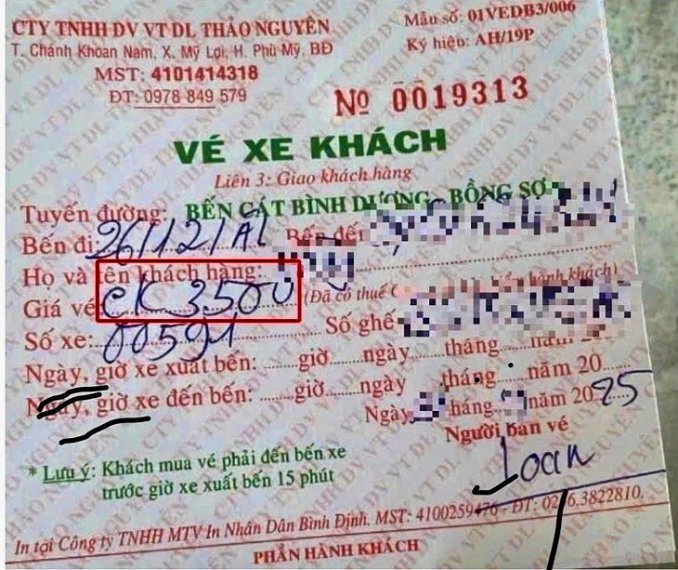 CTY TNHH DV VT DL THẢO NGUYÊN
T. Chánh Khoan Nam, X. Mỹ Lợi, H. Phù Mỹ, BĐ
MST: 4101414318
ĐT: 0978 849 579
Mẫu số: 01VEDB3/006
Ký hiệu: AH/19P
Nº 0019313
VÉ XE KHÁCH
Liên 3: Giao khách hàng
Tuyến đường: BẾN CÁT BÌNH DƯƠNG - BỒNG SƠN
Bến đi: 26/12/AL Bến đến
Họ và tên khách hàng:
Giá vé CK 3500 (Đã có thuế hành khách)
Số xe: 00591 Số ghế
Ngày, giờ xe xuất bến: ......giờ......ngày......tháng......năm 20
Ngày, giờ xe đến bến: ......giờ......ngày......tháng......năm 20
Ngày tháng năm 2025
Người bán vé
Loan
* Lưu ý: Khách mua vé phải đến bến xe
trước giờ xe xuất bến 15 phút
In tại Công ty TNHH MTV In Nhân Dân Bình Định. MST: 4100259476 - ĐT: 0256.3822810.
PHẦN HÀNH KHÁCH